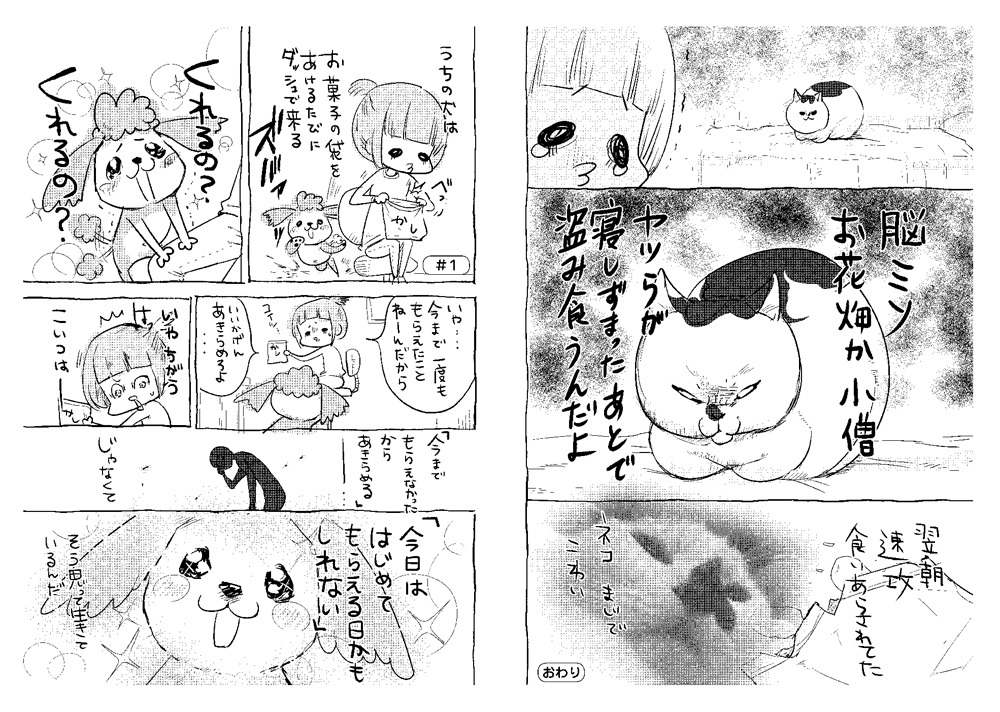 うちの犬は
お菓子の袋を
あけるたびに
ダッシュで来る
かし
#1
くれるの?
くれるの?
いや…
今まで一度も
もらえたこと
ねーんだから
いいかげん
あきらめろよ
…
はっ
いや ちがう
こいつは―
「今まで
もらえなかった
から
あきらめる…」
じゃなくて
「今日は
はじめて
もらえる日かも
しれない」
そう思って生きて
いるんだ
脳ミソ
お花畑か小僧
ヤツらが
寝しずまったあとで
盗み食うんだよ
翌朝
速攻
食いあらされてた
―ネコ まじで
こわい
おわり